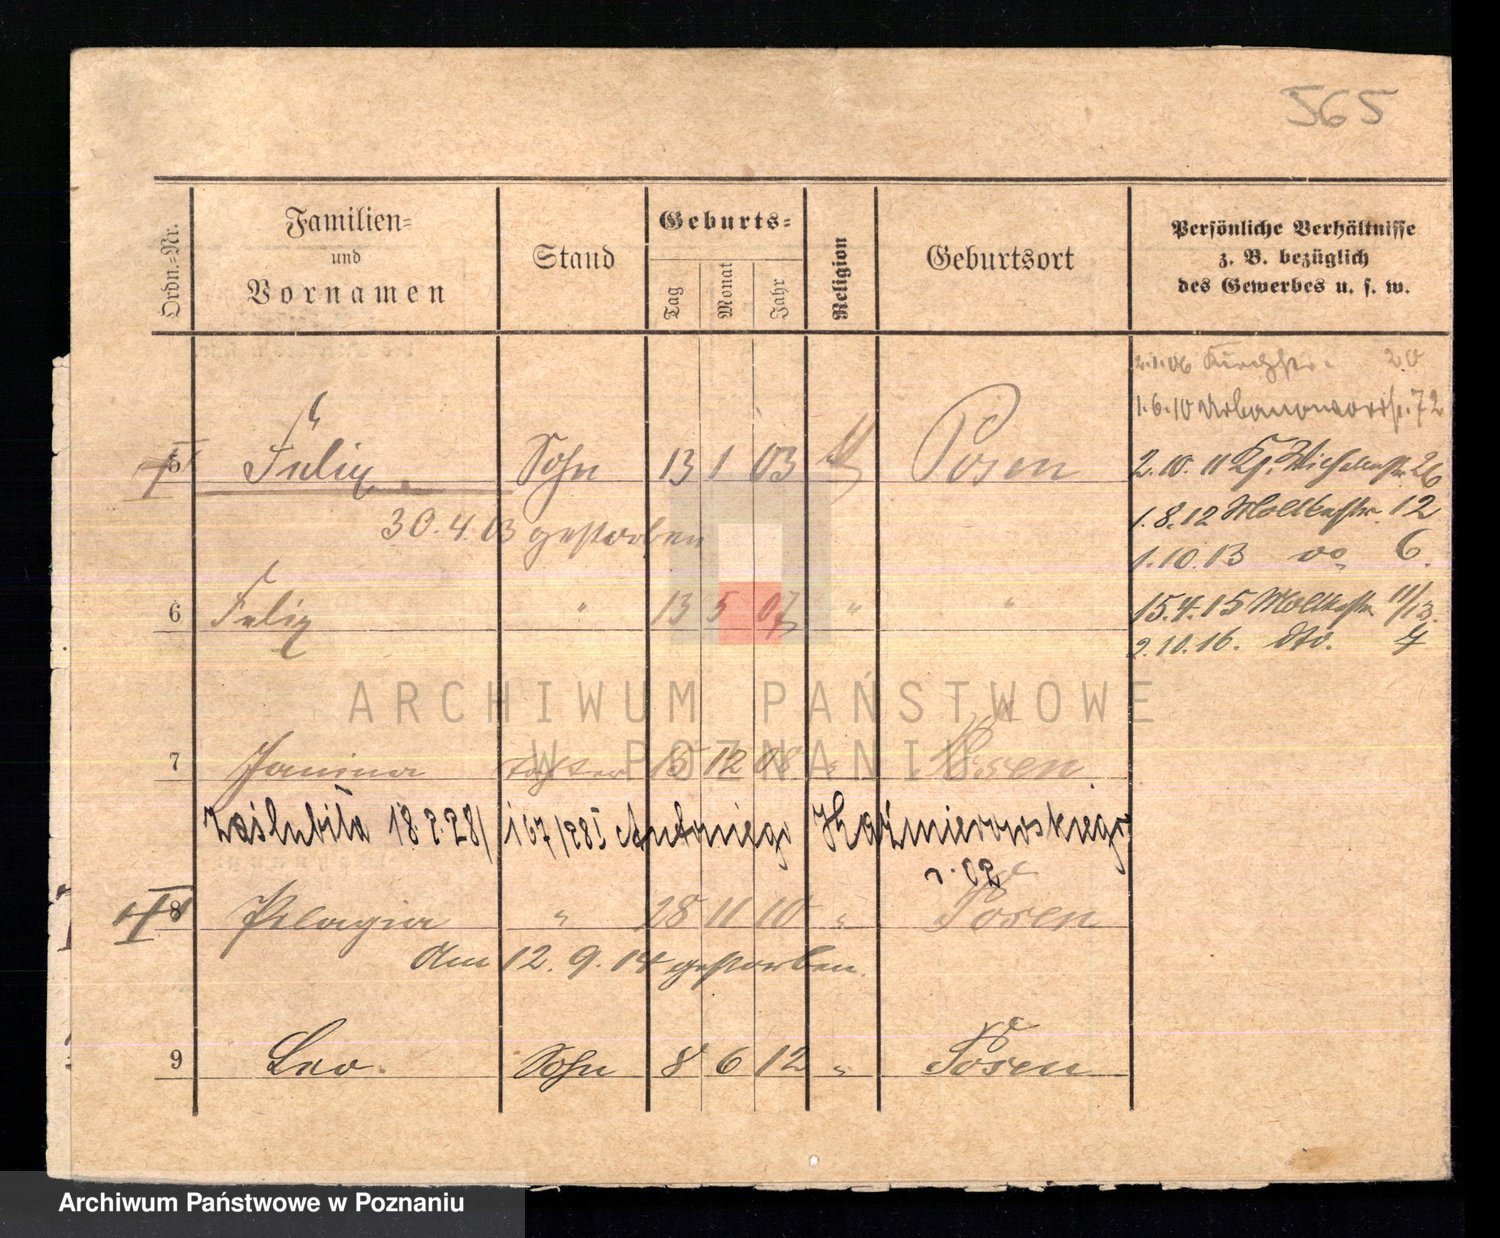 565
Ordn.-Nr.
Familien-
und
Vornamen
Stand
Geburts-
Tag
Monat
Jahr
Religion
Geburtsort
Persönliche Verhältnisse
z. B. bezüglich
des Gewerbes u. s. w.
2.1.06 Kirchstr. 20
1.6.10 Urbanowoerstr. 72
5 Felix Sohn 13 1 03 Posen
2.10.11 26
30.4.03 gestorben
1.8.12 Moltkestr. 12
1.10.13 do 6.
6 Felix " 13 5 07 " "
15.4.15 Moltkestr. 11/13.
2.10.16. dto. 4
ARCHIWUM PAŃSTWOWE
W POZNANIU
7 Janina Tochter 15 12 08 " Posen
Zaślubiła 18.2.28 / 167/28 I Antoniego Kaźmierowskiego
r. 02
8 Pelagia " 28 11 10 " Posen
Am 12.9.14 gestorben.
9 Leo. Sohn 8 6 12 " Posen
Archiwum Państwowe w Poznaniu